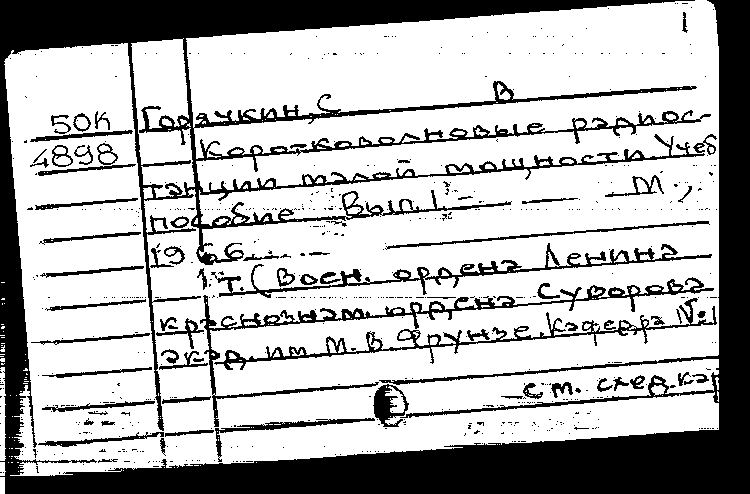 1
50К Горячкин, С В
4898 Коротковолновые радиос-
танции малой мощности. Учеб
пособие Вып. 1.- М.,
1966.....
т. (Воен. ордена Ленина
краснознам. ордена Суворова
акад. им. М. В. Фрунзе. Кафедра №1
см. след. кар